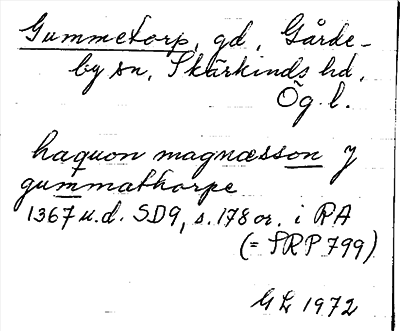 Gummetorp, gd, Gårde-
by sn, Skärkinds hd,
Ög. l.
haquon magnæsson J
gummathorpe
1367 u.d. SD9, s. 178 or. i RA
(= SRP 799)
GL 1972